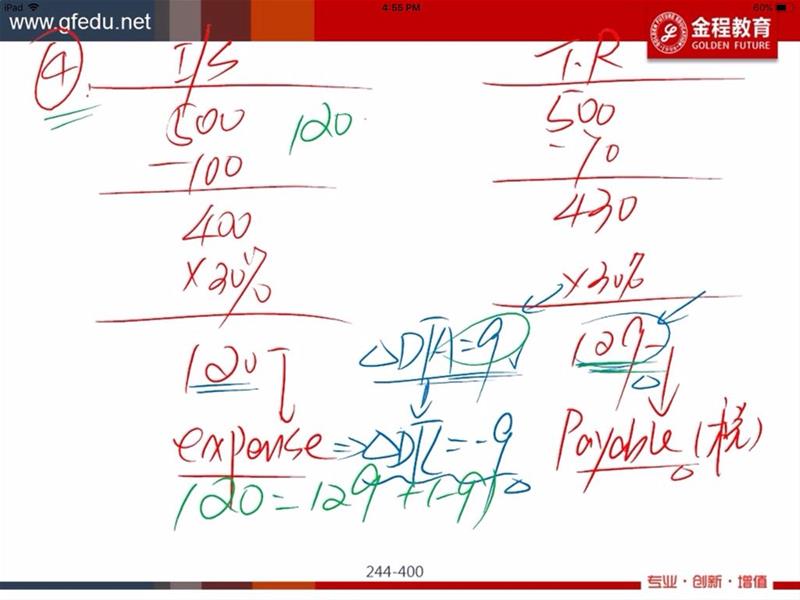 iPad 4:55 PM 60%
www.gfedu.net
金程教育
GOLDEN FUTURE
④ I/S T.R
500 120 500
-100 -70
400 430
×30% ×30%
120 ΔDTA=9 129
expense ⇒ ΔDTL=-9 Payable (税)
120=129+(-9)
244-400
专业·创新·增值